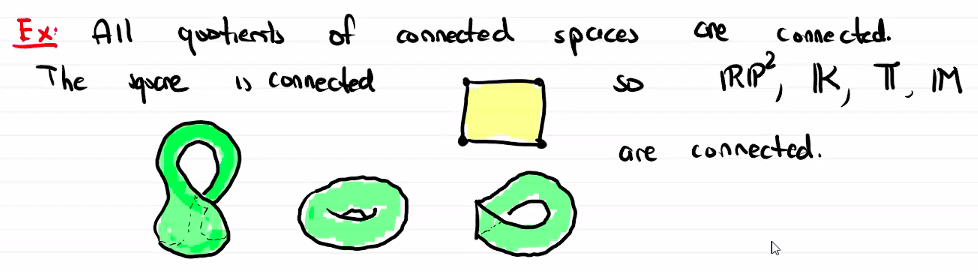 Ex: All quotients of connected spaces are connected.
The square is connected so ℝP², 𝕂, 𝕋, 𝕄
are connected.